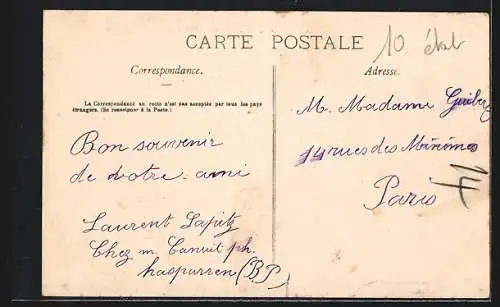 CARTE POSTALE
10 état
Correspondance.
Adresse.
La Correspondance au recto n'est pas acceptée par tous les pays
étrangers. (Se renseigner à la Poste.)
Bon souvenir
de votre ami
Laurent Lapitz
Chez m. ph.
hasparren (B P)
M. Madame
14 rues des Minimes
Paris
14